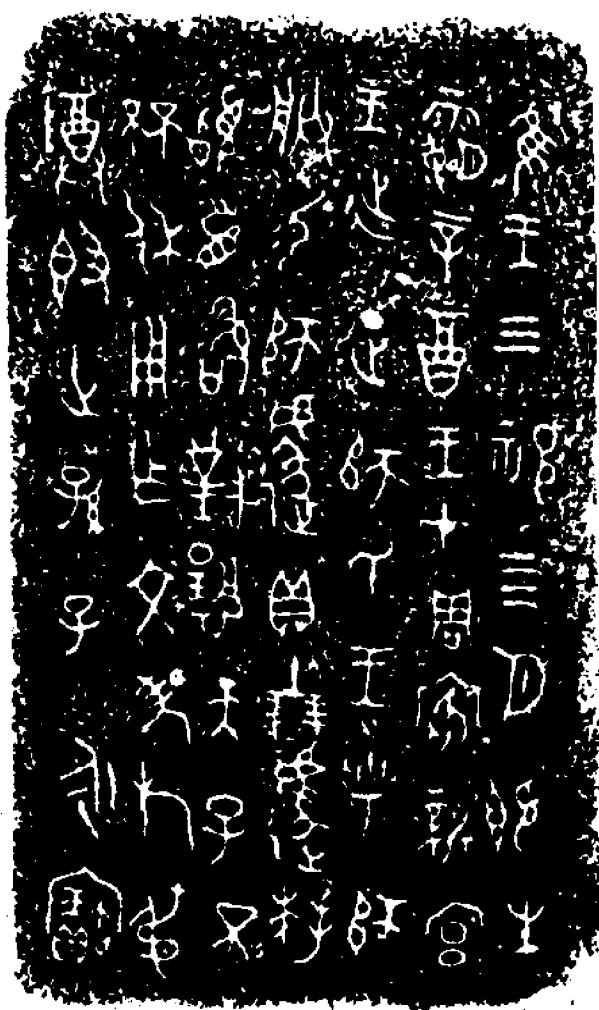 隹王三祀四月既生
霸辛酉王才周客新宮
王延正師氏王乎師
朕易師遽貝十朋遽拜
䭫首敢對揚天子不
㔻休用乍文考旄叔
尊𣪘世孫子永寶